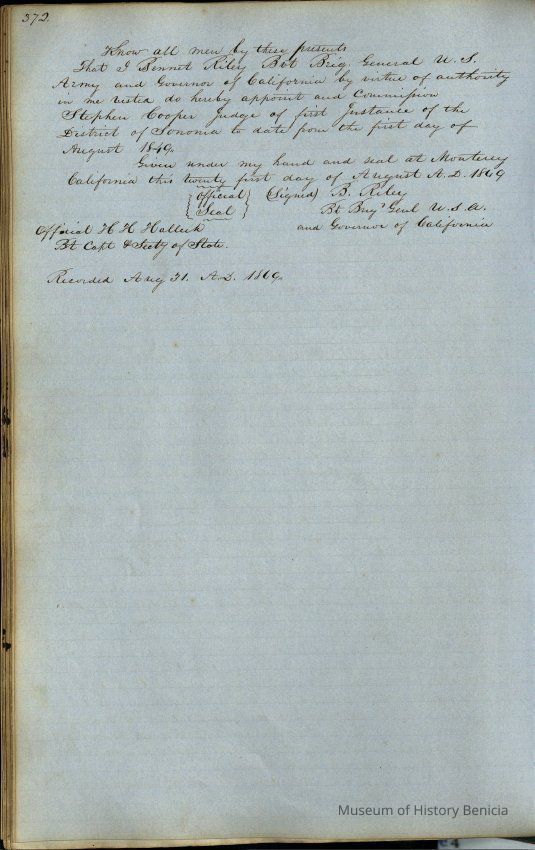 372.
Know all men by these presents
That I Bennet Riley Bvt Brig. General U. S.
Army and Governor of California by virtue of authority
in me vested do hereby appoint and Commission
Stephen Cooper Judge of first Instance of the
District of Sonoma to date from the first day of
August 1849.
Given under my hand and seal at Monterey
California this twenty first day of August A. D. 1849
{Official Seal} (Signed) B. Riley
Bt Brigr Genl U. S. A.
Official H H Halleck and Governor of California
Bt Capt & Secty of State.
Recorded Aug 31. A.D. 1849.
Museum of History Benicia